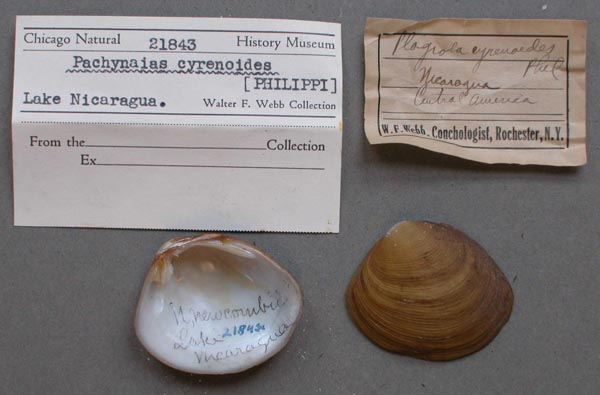 Chicago Natural 21843 History Museum
Pachynaias cyrenoides
[PHILIPPI]
Lake Nicaragua. Walter F. Webb Collection
From the Collection
Ex
Plagiola cyrenoides
Phil
Nicaragua
Central America
W. F. Webb, Conchologist, Rochester, N.Y.
U. newcombii
Lake 21843a
Nicaragua